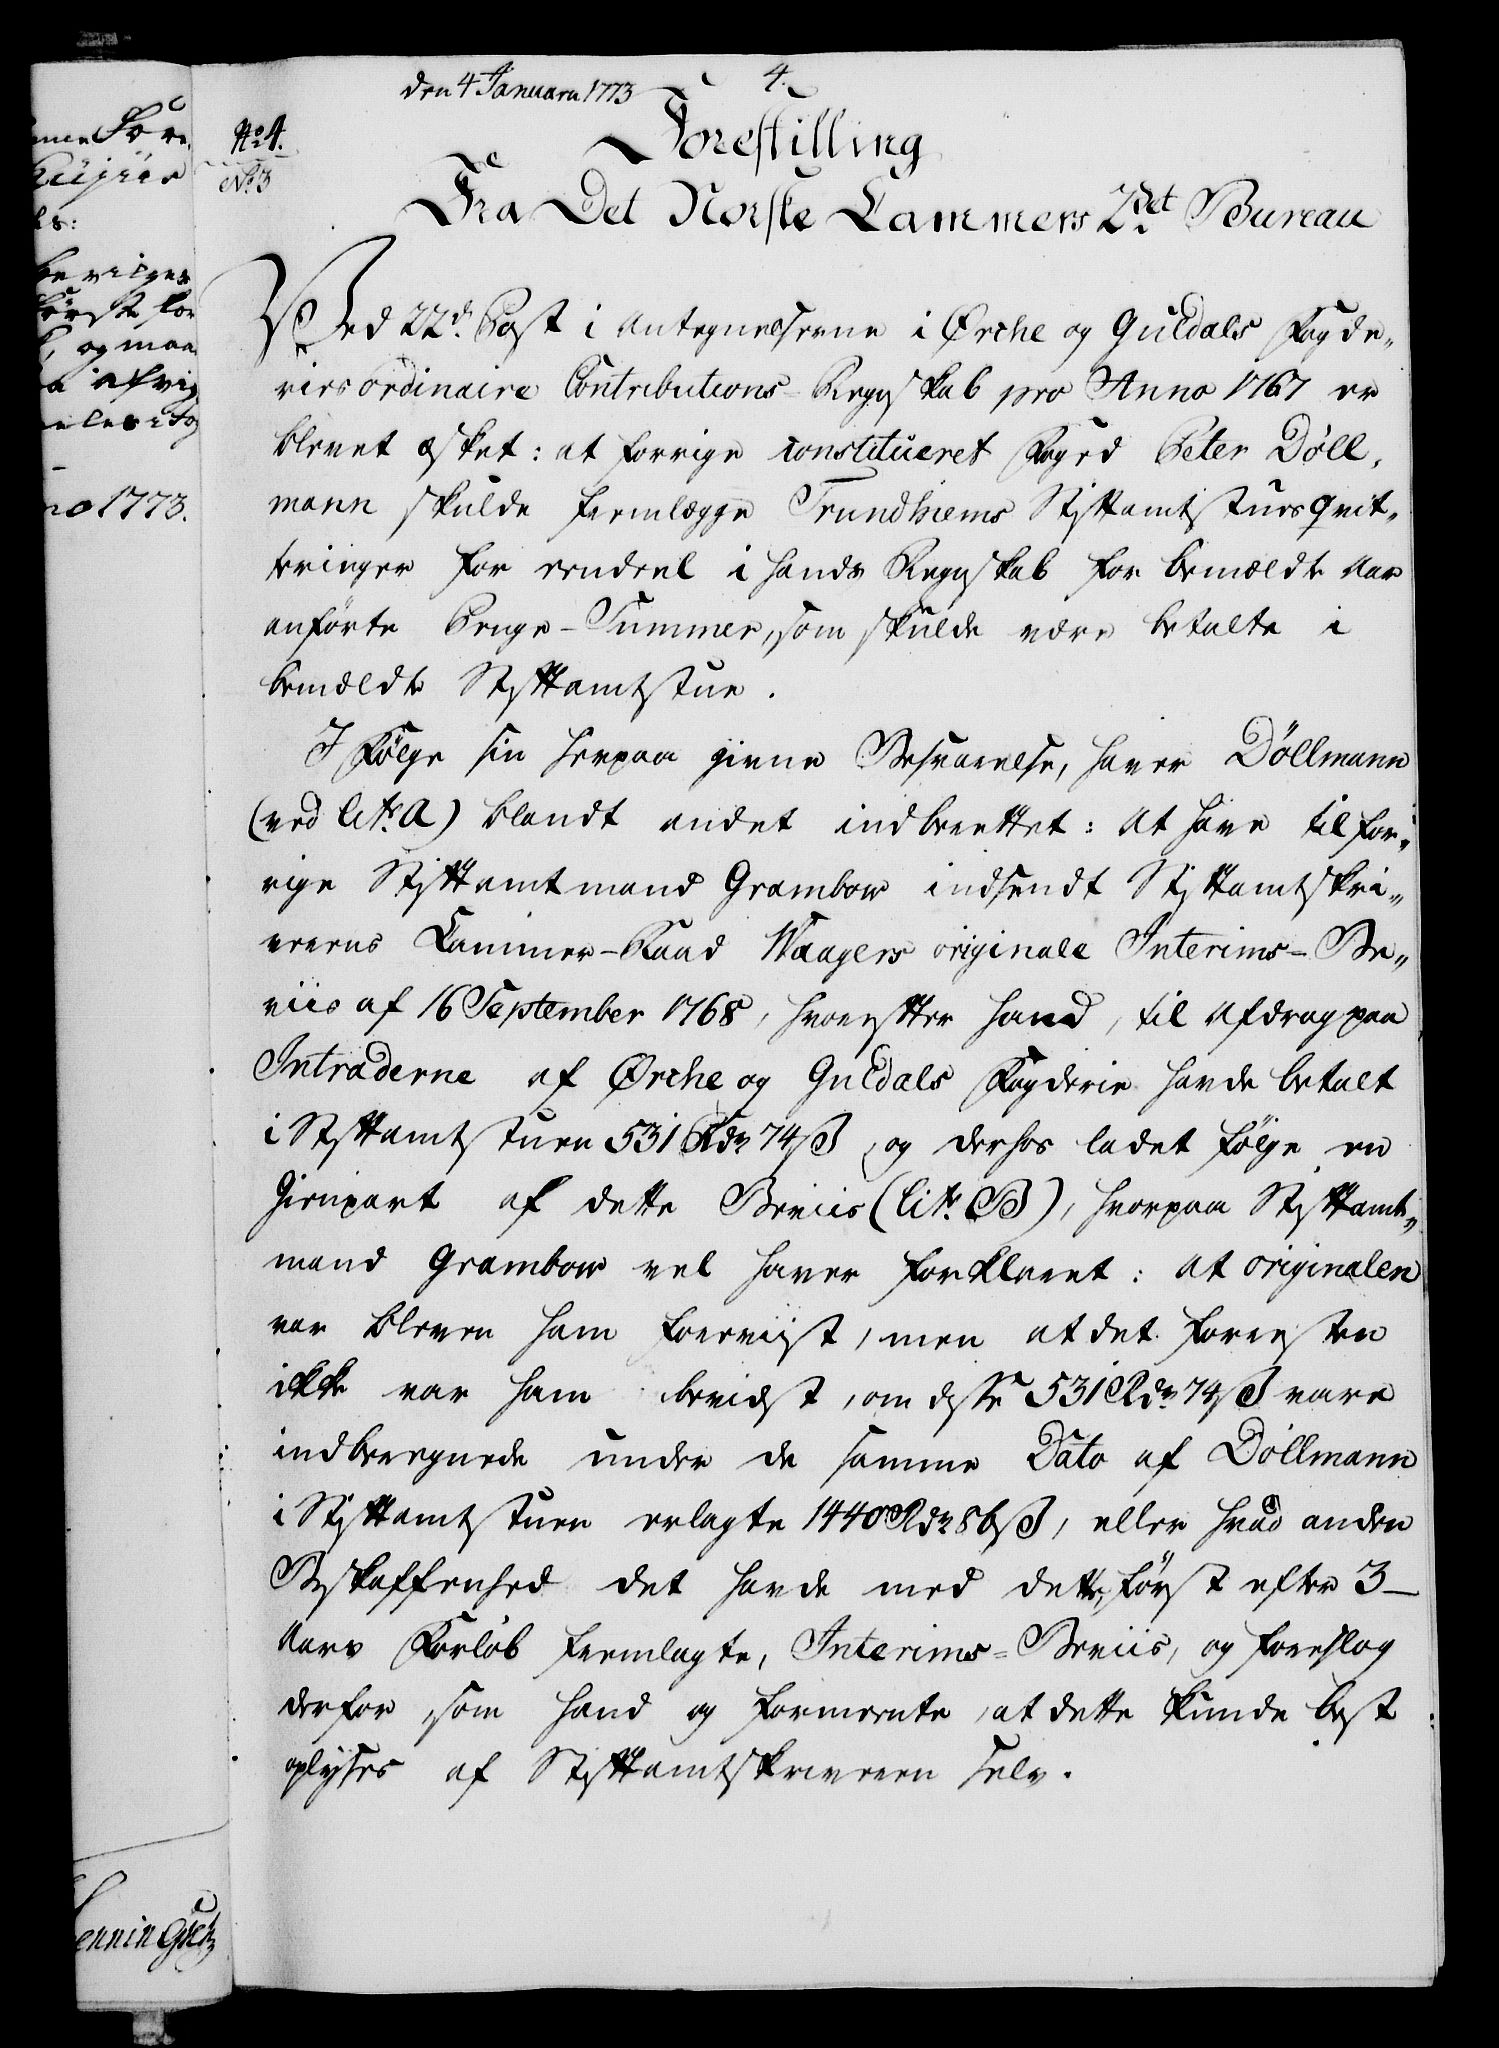 den 4 Januarii 1773
4.
No 4.
No 3
Forestilling
Fra Det Norske Cammers 2det Bureau
Ved 22de Post i Antegnelserne i Ørche og Guldals Fogde-
ries ordinaire Contributions-Regnskab pro Anno 1767 er
blevet æsket: at forrige constitueret Foged Peter Döll-
mann skulde fremlægge Trundhiems Stiftamtstues qvit-
teringer for eendeel i hands Regnskab for bemældte Aar
anførte Penge-Summer, som skulde være betalte i
bemældte Stiftamtstue.
I Følge sin herpaa givne Besvarelse, haver Döllmann
(ved Litr. A) blandt andet indberettet: at have til for-
rige Stiftamtmand Grambow indsendt Stiftamtskri-
verens Cammer-Raad Waagers originale Interims-Be-
viis af 16 September 1768, hvorefter hand, til Afdrag paa
Intraderne af Ørche og Guldals Fogderie havde betalt
i Stiftamtstuen 531 Rdr 74 ß, og derhos ladet følge en
Gienpart af dette Beviis (Litr. B), hvorpaa Stiftamt-
mand Grambow vel haver forklaret: at originalen
var bleven ham foreviist, men at det forresten
ikke var ham bevidst, om disse 531 Rdr 74 ß vare
indberegnede under de samme Dato af Döllmann
i Stiftamtstuen erlagte 1440 Rdr 86 ß, eller hvad anden
Beskaffenhed det havde med dette, først efter 3-
Aars Forløb fremlagte, Interims-Beviis, og foreslog
derfor, som hand og formeente, at dette kunde best
oplyses af Stiftamtskriveren selv.
og maa
no 1773.